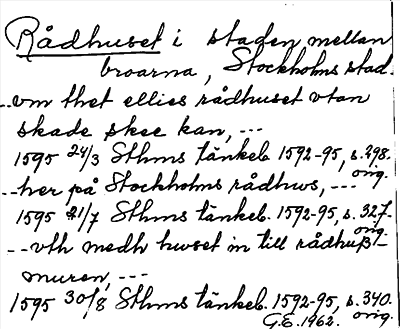 Rådhuset i staden mellan
broarna, Stockholms stad.
...vm thet ellies rådhuset vtan
skade skee kan, ---
1595 24/3 Sthms tänkeb. 1592-95, s. 298.
orig.
...her på Stockholms rådhws, ---
1595 21/7 Sthms tänkeb. 1592-95, s. 327.
orig.
---vth medh hwset in till rådhuß-
muren, ---
1595 30/8 Sthms tänkeb. 1592-95, s. 340.
G.E. 1962. orig.